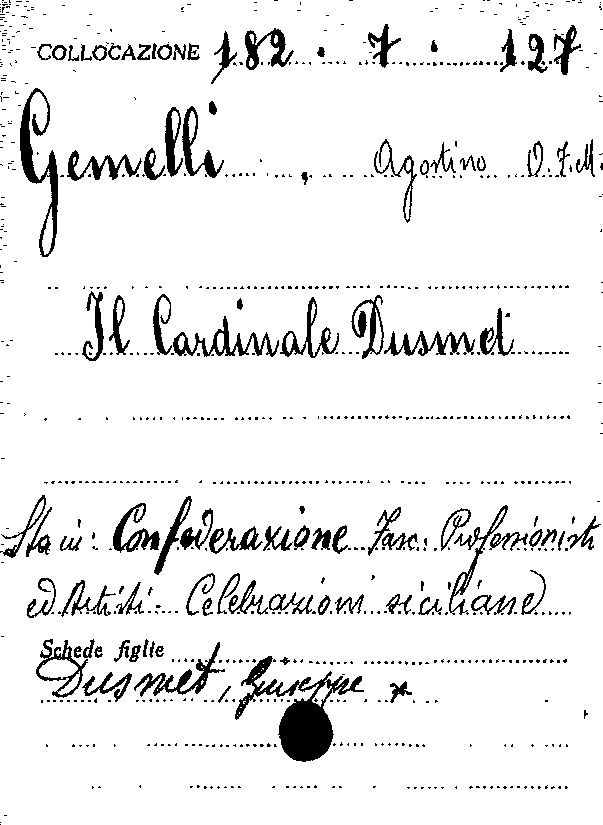 COLLOCAZIONE 182 . 7 . 127
Gemelli , Agostino O.F.M.
Il Cardinale Dusmet
Sta in: Confederazione Fasc. Professionisti
ed Artisti. Celebrazioni siciliane
Schede figlie
Dusmet, Giuseppe *